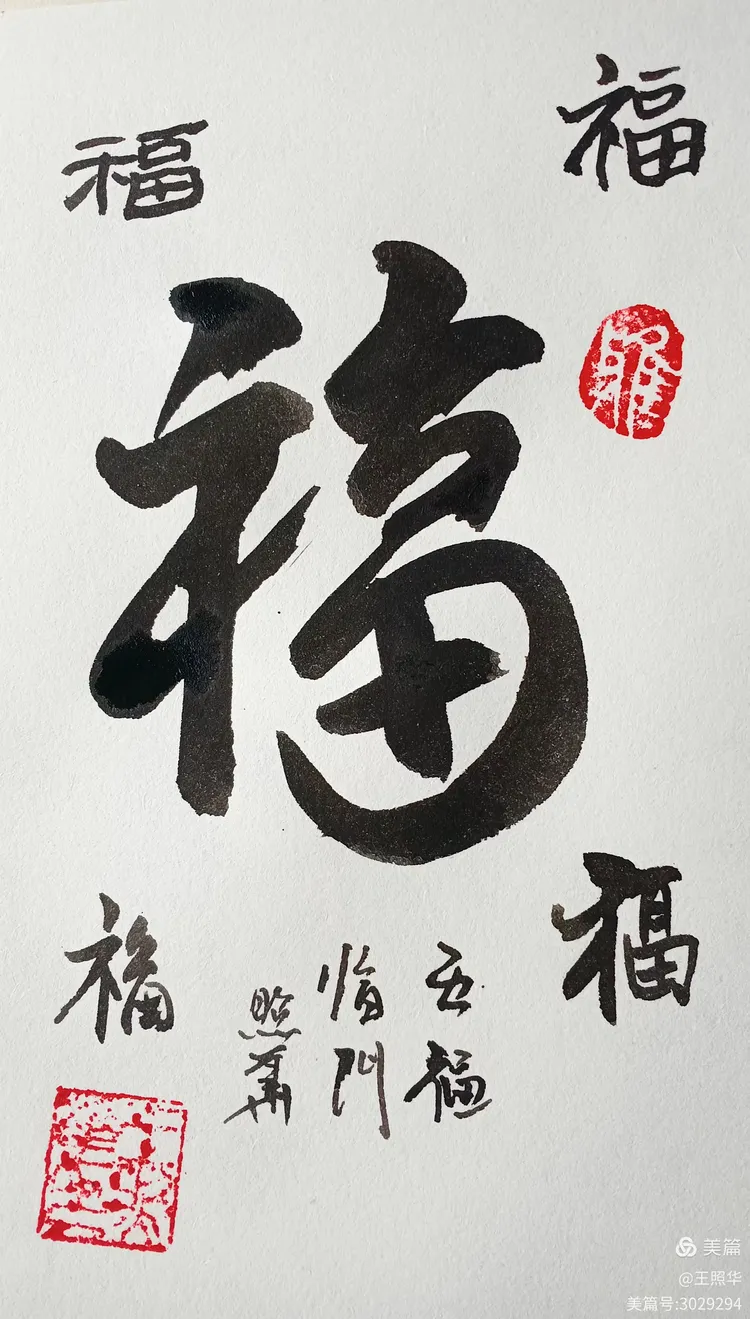 福
福
福
福
福
五福
临门
照华
美篇
@王照华
美篇号:3029294